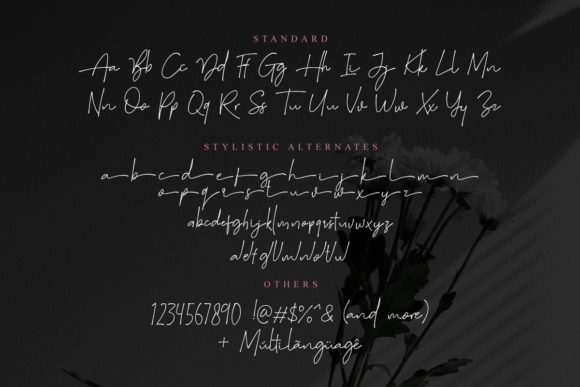 STANDARD
Aa Bb Cc Dd Ff Gg Hh Ii Jj Kk Ll Mm
Nn Oo Pp Qq Rr Ss Tt Uu Vv Ww Xx Yy Zz
STYLISTIC ALTERNATES
a b c d e f g h i j k l m n
o p q r s t u v w x y z
abcdefghijklmnopqrstuvwxyz
OTHERS
1234567890 !@#$%^& (and more)
+ Múltìlãngüagê